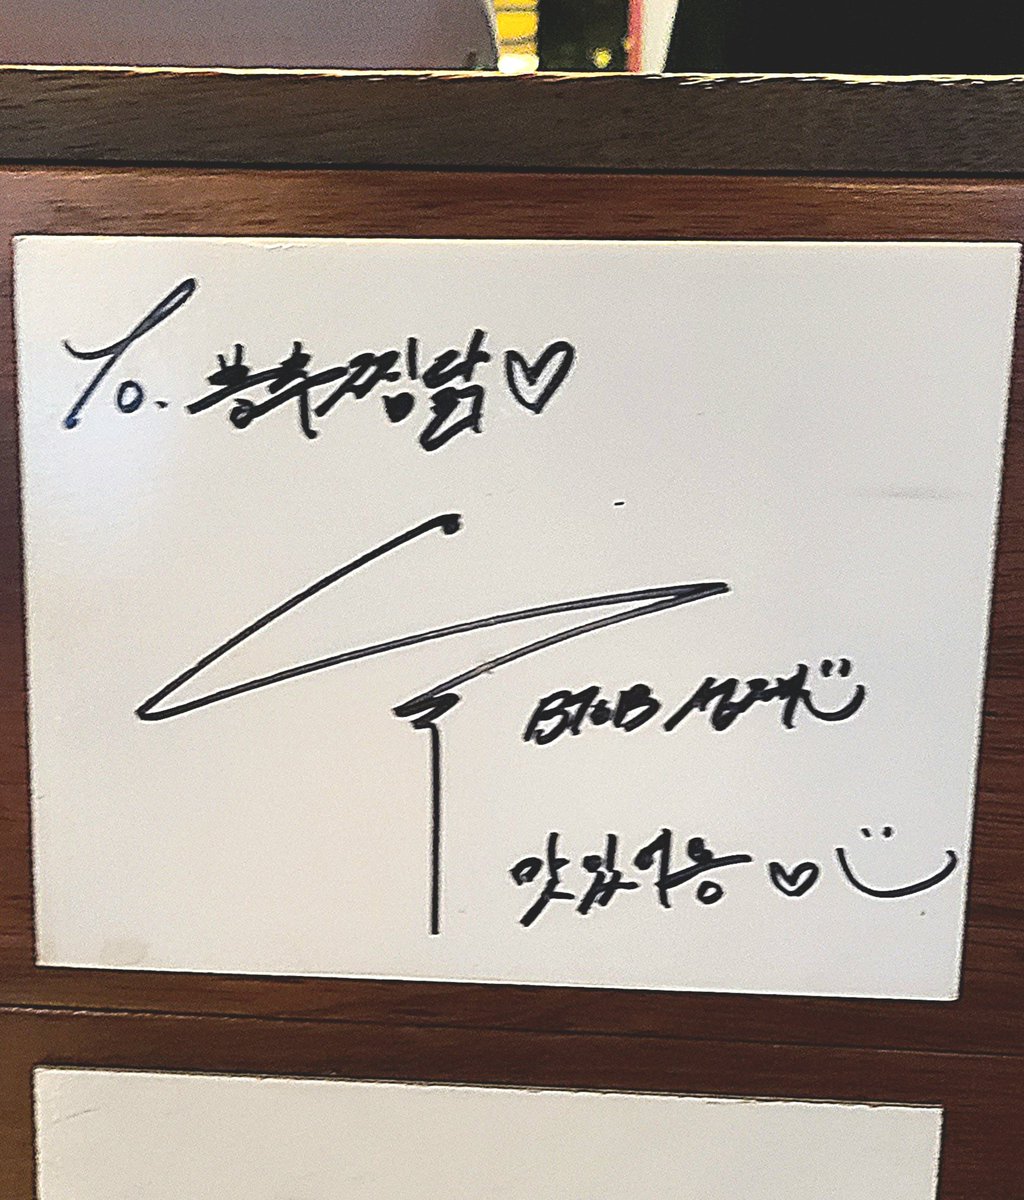 To. 봉추찜닭♡
BToB 성재
맛있어용 ♡